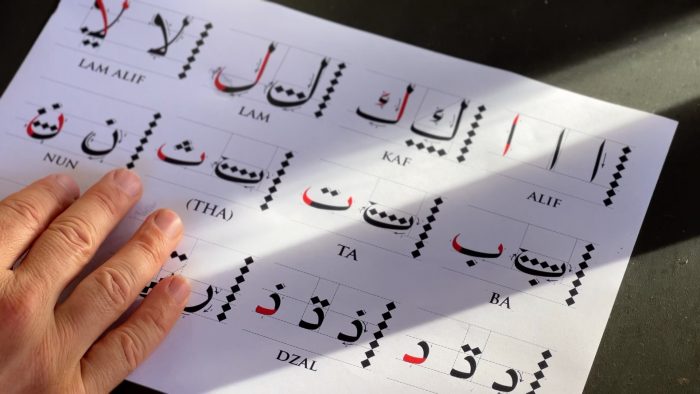 لا لا ل ل ك ك ا ا ا
LAM ALIF LAM KAF ALIF
ن ن ث ت ب
NUN (THA) TA BA
ر ذ ذ د د
DZAL